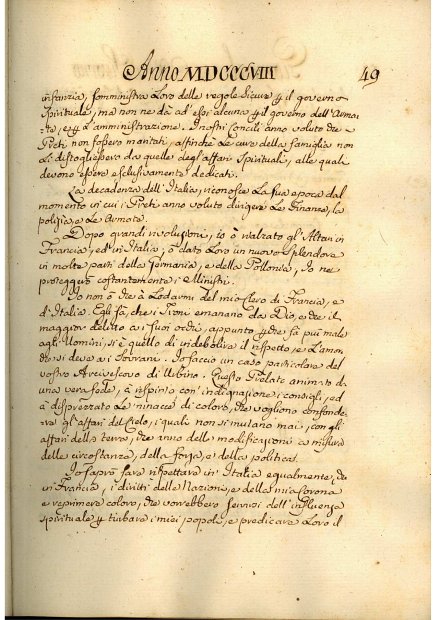 Anno MDCCCVIII 49
infanzia, somministra Loro delle regole sicure p il governo
Spirituale, ma non ne dà ad' essi alcuna p il governo dell' Arma-
te, e p L'amministrazione. I nostri Concilj anno voluto che i
Preti non fossero maritati, affinchè Le cure della famiglia non
Li distogliessero da quelle degl' affari Spirituali, alle quali
devono essere esclusivamente dedicati.
La decadenza dell' Italia, riconosce La sua epoca dal
momento in cui i Preti anno voluto dirigere Le Finanze, la
polizia e Le Armate.
Dopo grandi rivoluzioni, io ò rialzato gl' Altari in
Francia, ed' in Italia; ò dato Loro un nuovo Splendore
in molte parti della Germania, e della Pollonia, Io ne
proteggerò costantemente i Ministri.
Io non ò che à Lodarmi del mio Clero di Francia, e
d'Italia. Egli sà, che i Troni emanano da Dio, e che il
maggior delitto a' suoi occhi, appunto p che fà più male
agli Uomini, si è quello di indebolire il rispetto, e L'amo-
re che si deve a i Sovrani. Io faccio un caso particolare del
vostro Arcivescovo di Urbino. Questo Prelato animato da
una vera fede, à rispinto con' indignazione i consigli, ed
à disprezzato Le minacce di coloro, che vogliono confonde-
re gl' affari del Cielo, i quali non si mutano mai, con gli
affari della terra, che anno delle modificazioni a misura
delle circostanze, della forza, e della politica.
Io saprò fare rispettare in' Italia egualmente, che
in Francia, i diritti delle Nazioni, e della mia Corona
e reprimere coloro, che vorrebbero servirsi dell' influenza
spirituale p turbare i miei popoli, e predicare Loro il